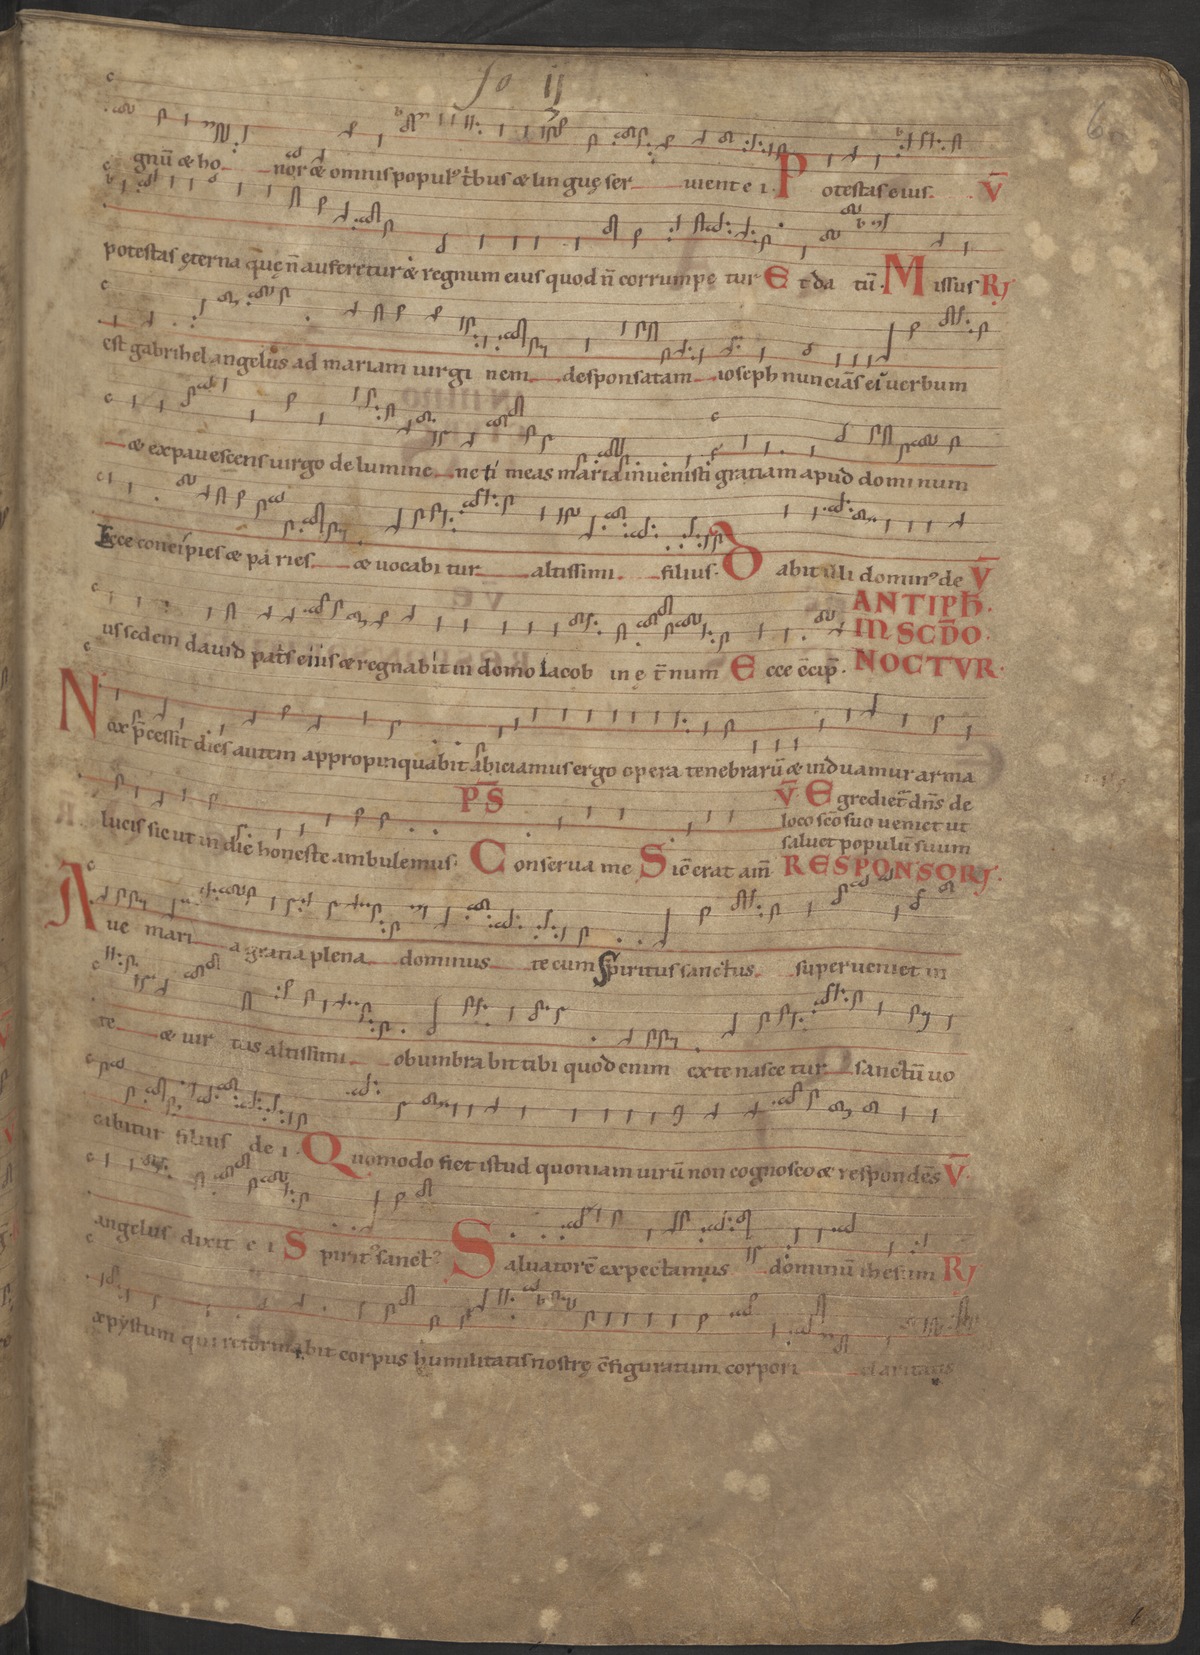 fo ij
6
gnū & ho nor & omnis popul⁹ t̄bus & linguę ser uient e i. P otestas eius. V̄
potestas ęterna quę n̄ auferetur & regnum eius quod n̄ corrumpe tur E t da tū. M issus R⁊
est gabrihel angelus ad mariam uirgi nem desponsatam ioseph nunciās ei uerbum
& expauescens uirgo de lumine ne ti meas maria inuenisti gratiam apud dominum
Ecce concipies & pa ries & uocabi tur altissimi filius. D abit illi domin⁹ de V̄
us sedem dauid patris eius & regnabit in domo iacob in ę t̄num E cce c̄cip̄.
ANTIPH̄.
IN SCD̄O
NOCTVR.
N ox p̄cessit dies autem appropinquabit abiciamus ergo opera tenebrarū & induamur arma
lucis sic ut in die honeste ambulemus. P̄S C onserua me S ic̄ erat am̄
V̄ E grediet̄ dn̄s de
loco sc̄o suo ueniet ut
saluet populū suum
RESPONSOR⁊.
A ue mari a gratia plena dominus tecum Spiritus sanctus superueniet in
te & uir tus altissimi obumbrabit tibi quod enim ex te nasce tur sanctū uo
cabitur filius de i. Q uomodo fiet istud quoniam uirū non cognosco & respondēs V̄.
angelus dixit e i S pirit⁹ sanct⁹ S aluatorē expectamus dominū ihesum R⁊
xpystum qui reformabit corpus humilitatis nostrę c̄figuratum corpori claritatis